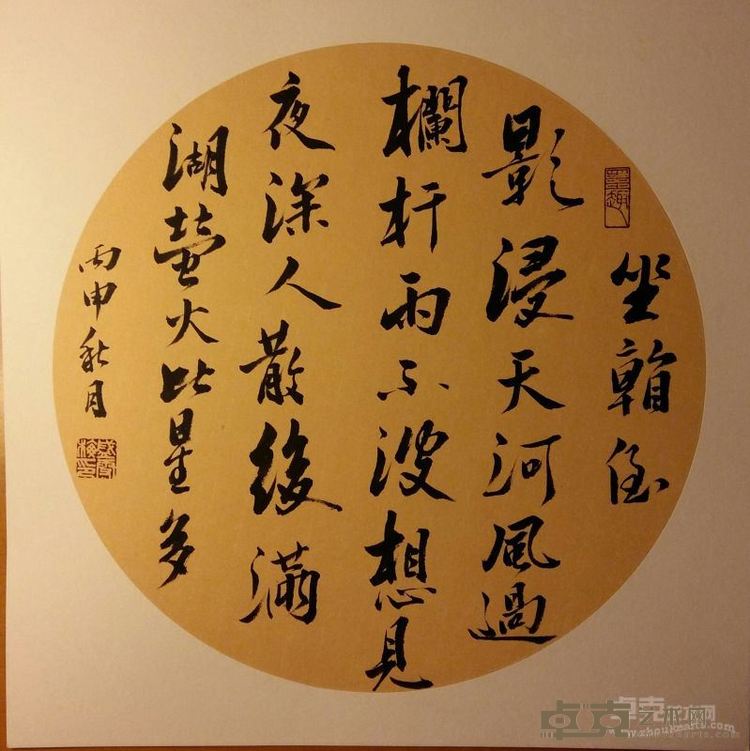 坐倒
影浸天河風過
欄杆雨不波想見
夜深人散後滿
湖螢火比星多
丙申秋月
卓克艺术网